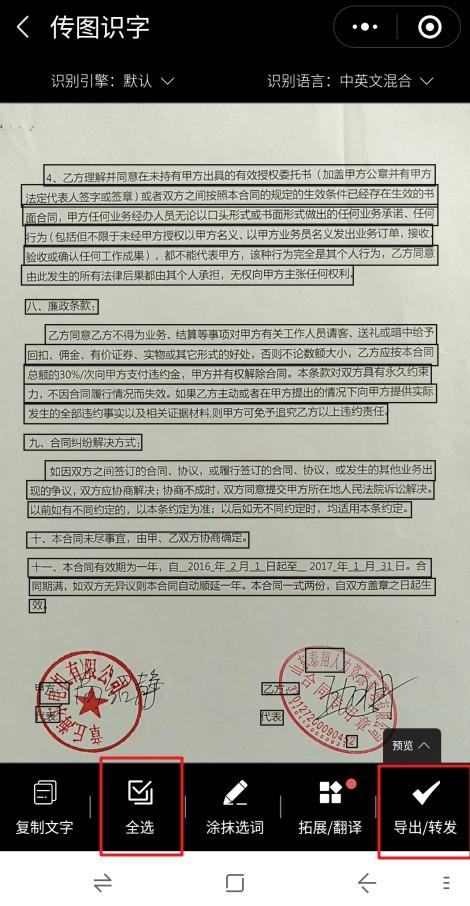 传图识字
识别引擎：默认
识别语言：中英文混合
4、乙方理解并同意在未持有甲方出具的有效授权委托书（加盖甲方公章并有甲方
法定代表人签字或签章）或者双方之间按照本合同的规定的生效条件已经存在生效的书
面合同，甲方任何业务经办人员无论以口头形式或书面形式做出的任何业务承诺、任何
行为（包括但不限于未经甲方授权以甲方名义、以甲方业务员名义发出业务订单，接收、
验收或确认任何工作成果），都不能代表甲方，该种行为完全是其个人行为，乙方同意
由此发生的所有法律后果都由其个人承担，无权向甲方主张任何权利。
八、廉政条款：
乙方同意乙方不得为业务、结算等事项对甲方有关工作人员请客、送礼或暗中给予
回扣、佣金、有价证券、实物或其它形式的好处，否则不论数额大小，乙方应按本合同
总额的30%/次向甲方支付违约金，甲方并有权解除合同。本条款对双方具有永久约束
力，不因合同履行情况而失效。如果乙方主动或者在甲方提出的情况下向甲方提供实际
发生的全部违约事实以及相关证据材料,则甲方可免予追究乙方以上违约责任.
九、合同纠纷解决方式：
如因双方之间签订的合同、协议，或履行签订的合同、协议，或发生的其他业务出
现的争议，双方应协商解决；协商不成时，双方同意提交甲方所在地人民法院诉讼解决。
以前如有不同约定的，以本条约定为准；以后如无不同约定时，均适用本条约定。
十、本合同未尽事宜，由甲、乙双方协商确定。
十一、本合同有效期为一年，自 2016 年 2 月 1 日起至 2017 年 1 月 31 日。合
同期满，如双方无异议则本合同自动顺延一年。本合同一式两份，自双方盖章之日起生
效。
甲方
乙方
代表
代表
预览
复制文字
全选
涂抹选词
拓展/翻译
导出/转发